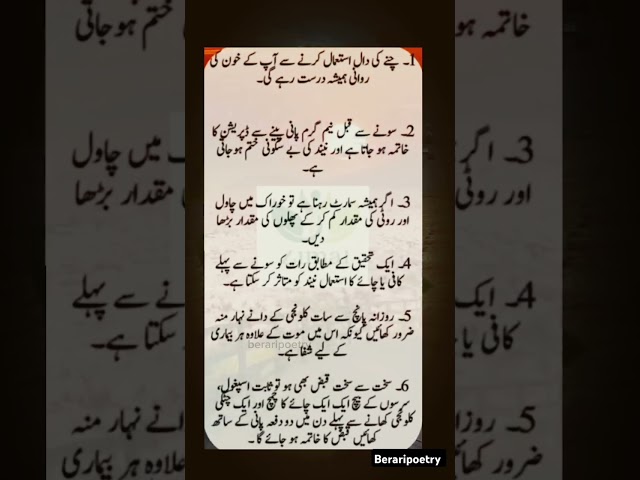 1۔ چنے کی دال استعمال کرنے سے آپ کے خون کی
روانی ہمیشہ درست رہے گی۔
2۔ سونے سے قبل نیم گرم پانی پینے سے ڈپریشن کا
خاتمہ ہو جاتا ہے اور نیند کی بے سکونی ختم ہو جاتی
ہے۔
3۔ اگر ہمیشہ سمارٹ رہنا ہے تو خوراک میں چاول
اور روٹی کی مقدار کم کر کے پھلوں کی مقدار بڑھا
دیں۔
4۔ ایک تحقیق کے مطابق رات کو سونے سے پہلے
کافی یا چائے کا استعمال نیند کو متاثر کر سکتا ہے۔
5۔ روزانہ پانچ سے سات کلونجی کے دانے نہار منہ
ضرور کھائیں کیونکہ اس میں موت کے علاوہ ہر بیماری
کے لیے شفا ہے۔
6۔ سخت سے سخت قبض بھی ہو تو ثابت اسپغول،
سرسوں کے بیج ایک ایک چائے کا چمچ اور ایک چٹکی
کلونجی کھانے سے پہلے دن میں دو دفعہ پانی کے ساتھ
کھائیں قبض کا خاتمہ ہو جائے گا۔
beraripoetry
Beraripoetry
خاتمہ ہو
ختم ہو جاتی
3۔ اگر
ک میں چاول
اور رو
مقدار بڑھا
4۔ ایک
نے سے پہلے
کافی یا
سکتا ہے۔
5۔ روزا
نہار منہ
ضرور کھا
علاوہ ہر بیماری